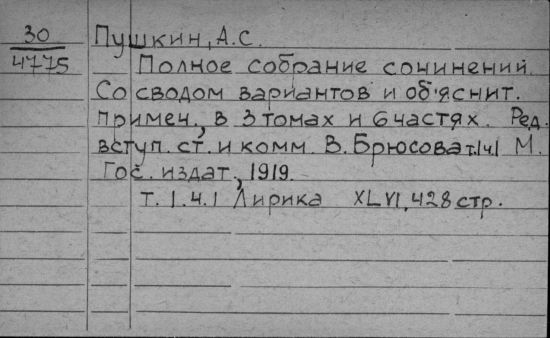 30
4775
Пушкин, А.С.
Полное собрание сочинений.
Со сводом вариантов и об'яснит.
примеч., в 3 томах и 6 частях. Ред.
вступ. ст. и комм. В. Брюсова т.1 ч1 М.
Гос. издат., 1919.
Т. 1. ч. 1 Лирика XLVI, 428 стр.